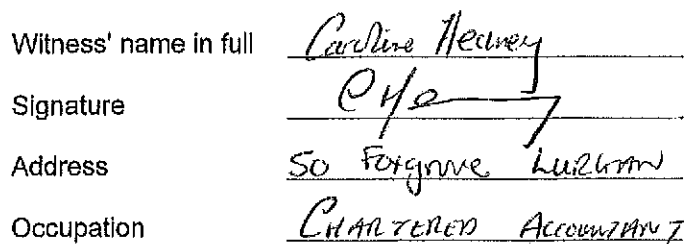 Witness' name in full Caroline Heaney
Signature
Address 50 Foxgrove LURGAN
Occupation CHARTERED ACCOUNTANT